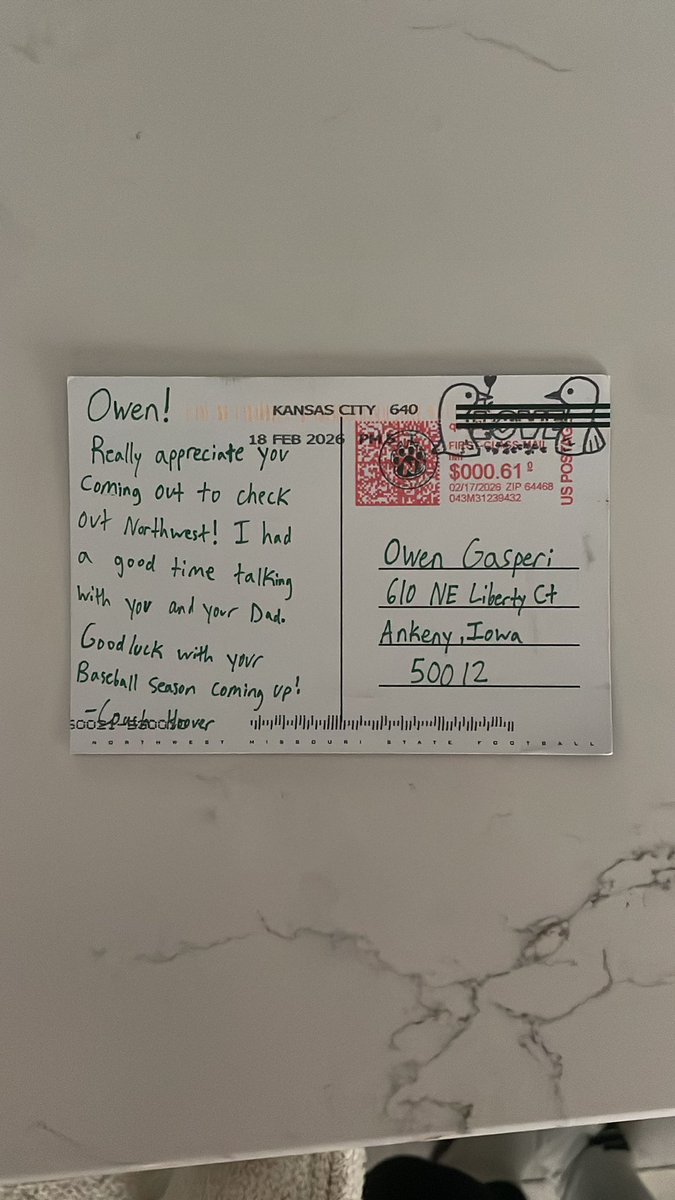 Owen!
Really appreciate you
coming out to check
out Northwest! I had
a good time talking
with you and your Dad.
Good luck with your
Baseball season coming up!
-Coach Hoover
KANSAS CITY 640
18 FEB 2026 PM
FIRST-CLASS MAIL
$000.61⁰
02/17/2026 ZIP 64468
043M31239432
US POSTAGE
Owen Gasperi
610 NE Liberty Ct
Ankeny, Iowa
50012
NORTHWEST MISSOURI STATE FOOTBALL